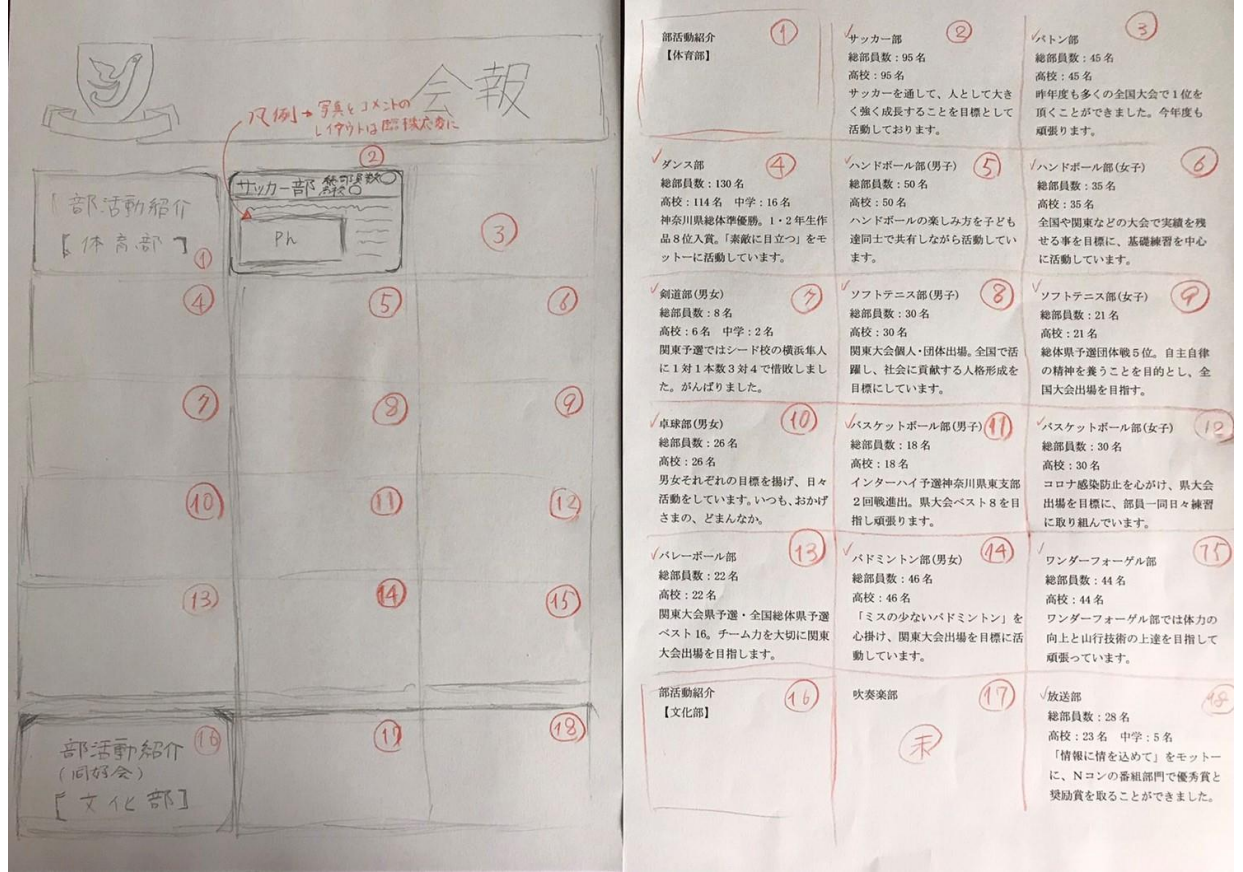 会報
凡例→写真とコメントの
レイアウトは臨機応変に
②
サッカー部 総部員数○
高校○
Ph
部活動紹介
【体育部】
①
③
④
⑤
⑥
⑦
⑧
⑨
⑩
⑪
⑫
⑬
⑭
⑮
部活動紹介
(同好会)
【文化部】
⑯
⑰
⑱
部活動紹介
【体育部】
①
サッカー部
②
総部員数：95名
高校：95名
サッカーを通して、人として大き
く強く成長することを目標として
活動しております。
バトン部
③
総部員数：45名
高校：45名
昨年度も多くの全国大会で１位を
頂くことができました。今年度も
頑張ります。
ダンス部
④
総部員数：130名
高校：114名　中学：16名
神奈川県総体準優勝。１・２年生作
品８位入賞。「素敵に目立つ」をモ
ットーに活動しています。
ハンドボール部(男子)
⑤
総部員数：50名
高校：50名
ハンドボールの楽しみ方を子ども
達同士で共有しながら活動してい
ます。
ハンドボール部(女子)
⑥
総部員数：35名
高校：35名
全国や関東などの大会で実績を残
せる事を目標に、基礎練習を中心
に活動しています。
剣道部(男女)
⑦
総部員数：8名
高校：6名　中学：2名
関東予選ではシード校の横浜隼人
に１対１本数３対４で惜敗しまし
た。がんばりました。
ソフトテニス部(男子)
⑧
総部員数：30名
高校：30名
関東大会個人・団体出場。全国で活
躍し、社会に貢献する人格形成を
目標にしています。
ソフトテニス部(女子)
⑨
総部員数：21名
高校：21名
総体県予選団体戦５位。自主自律
の精神を養うことを目的とし、全
国大会出場を目指す。
卓球部(男女)
⑩
総部員数：26名
高校：26名
男女それぞれの目標を揚げ、日々
活動をしています。いつも、おかげ
さまの、どまんなか。
バスケットボール部(男子)
⑪
総部員数：18名
高校：18名
インターハイ予選神奈川県東支部
２回戦進出。県大会ベスト８を目
指し頑張ります。
バスケットボール部(女子)
⑫
総部員数：30名
高校：30名
コロナ感染防止を心がけ、県大会
出場を目標に、部員一同日々練習
に取り組んでいます。
バレーボール部
⑬
総部員数：22名
高校：22名
関東大会県予選・全国総体県予選
ベスト16。チーム力を大切に関東
大会出場を目指します。
バドミントン部(男女)
⑭
総部員数：46名
高校：46名
「ミスの少ないバドミントン」を
心掛け、関東大会出場を目標に活
動しています。
ワンダーフォーゲル部
⑮
総部員数：44名
高校：44名
ワンダーフォーゲル部では体力の
向上と山行技術の上達を目指して
頑張っています。
部活動紹介
【文化部】
⑯
吹奏楽部
⑰
未
放送部
⑱
総部員数：28名
高校：23名　中学：5名
「情報に情を込めて」をモットー
に、Ｎコンの番組部門で優秀賞と
奨励賞を取ることができました。